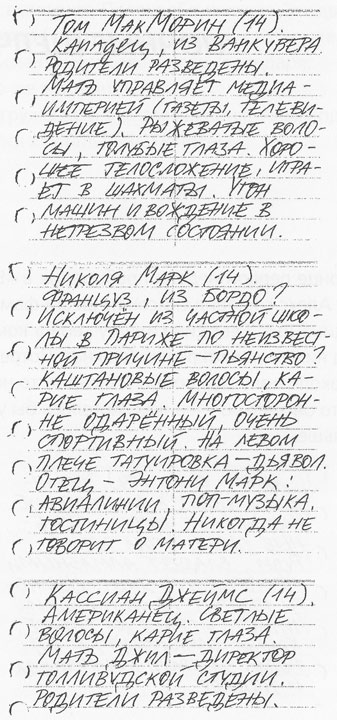 Том МакМорин (14).
Канадец, из Ванкувера
Родители разведены.
Мать управляет медиа-
империей (газеты, телеви-
дение). Рыжеватые воло-
сы, голубые глаза. Хоро-
шее телосложение, игра-
ет в шахматы. Угон
машин и вождение в
нетрезвом состоянии.
Николя Марк (14).
Француз, из Бордо?
Исключён из частной шко-
лы в Париже по неизвест-
ной причине — пьянство?
Каштановые волосы, ка-
рие глаза. Многосторон-
не одарённый, очень
спортивный. На левом
плече татуировка — дьявол.
Отец — Энтони Марк:
авиалинии, поп-музыка,
гостиницы. Никогда не
говорит о матери.
Кассиан Джеймс (14).
Американец. Светлые
волосы, карие глаза.
Мать Джил — директор
голливудской студии.
Родители разведены.